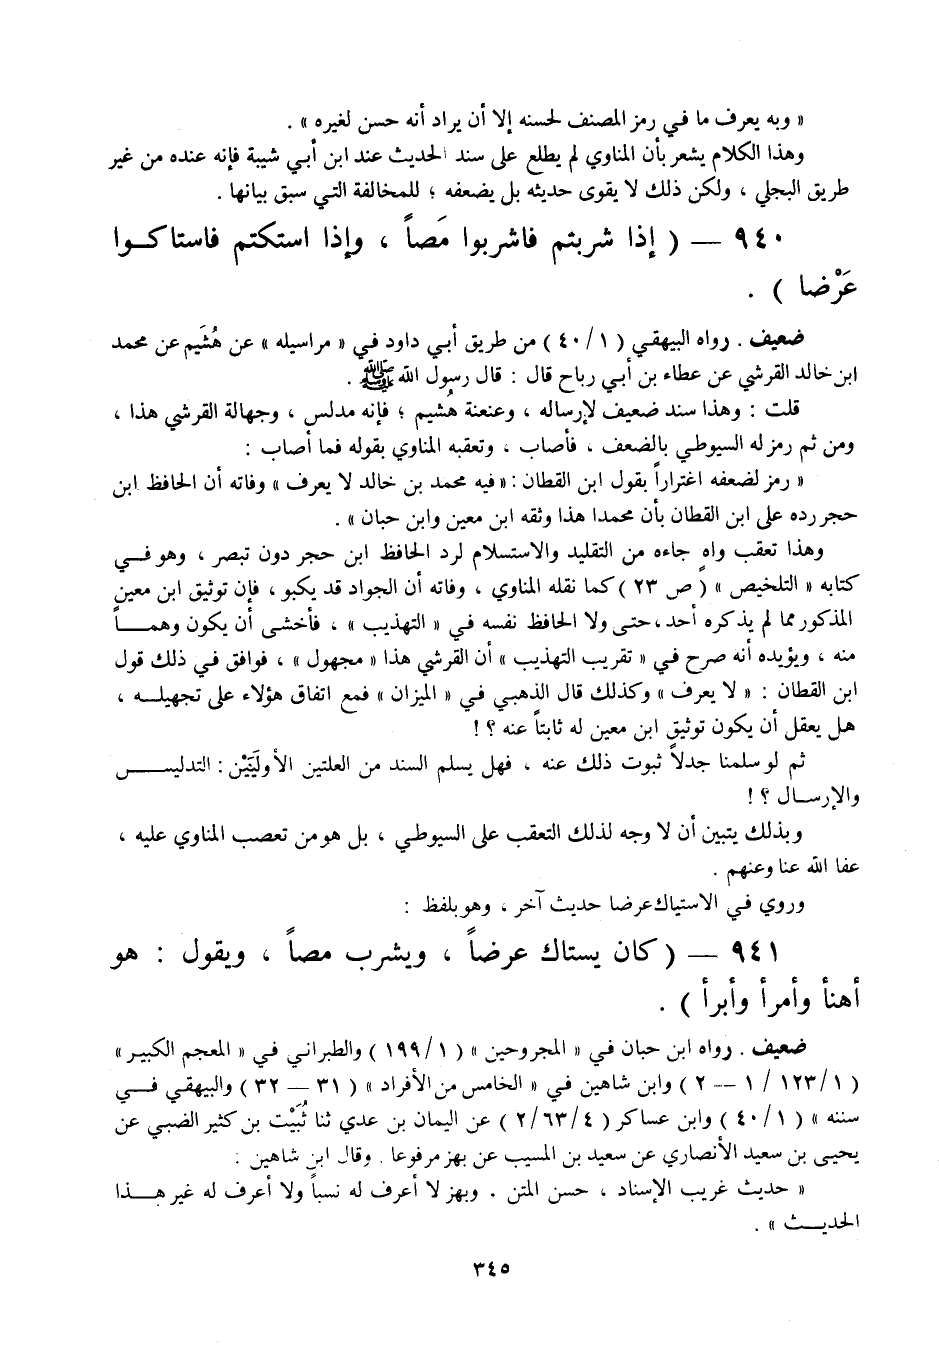 « وبه يعرف ما في رمز المصنف لحسنه إلا أن يراد أنه حسن لغيره » .
وهذا الكلام يشعر بأن المناوي لم يطلع على سند الحديث عند ابن أبي شيبة فإنه عنده من غير
طريق البجلي ، ولكن ذلك لا يقوى حديثه بل يضعفه ؛ للمخالفة التي سبق بيانها .
٩٤٠ — ( إذا شربتم فاشربوا مَصاً ، وإذا استكتم فاستاكــوا
عَرْضا ) .
ضعيف . رواه البيهقي ( ١/ ٤٠ ) من طريق أبي داود في « مراسيله » عن هُشَيم عن محمد
ابن خالد القرشي عن عطاء بن أبي رباح قال : قال رسول الله ﷺ .
قلت : وهذا سند ضعيف لإرساله ، وعنعنة هُشيم ؛ فإنه مدلس ، وجهالة القرشي هذا ،
ومن ثم رمز له السيوطي بالضعف ، فأصاب ، وتعقبه المناوي بقوله فما أصاب :
« رمز لضعفه اغتراراً بقول ابن القطان : « فيه محمد بن خالد لا يعرف » وفاته أن الحافظ ابن
حجر رده على ابن القطان بأن محمدا هذا وثقه ابن معين وابن حبان » .
وهذا تعقب واهٍ جاءه من التقليد والاستسلام لرد الحافظ ابن حجر دون تبصر ، وهو فــي
كتابه « التلخيص » ( ص ٢٣ ) كما نقله المناوي ، وفاته أن الجواد قد يكبو ، فإن توثيق ابن معين
المذكور مما لم يذكره أحد ، حتى ولا الحافظ نفسه في « التهذيب » ، فأخشى أن يكون وهمــــاً
منه ، ويؤيده أنه صرح في « تقريب التهذيب » أن القرشي هذا « مجهول » ، فوافق في ذلك قول
ابن القطان : « لا يعرف » وكذلك قال الذهبي في « الميزان » فمع اتفاق هؤلاء على تجهيلــه ،
هل يعقل أن يكون توثيق ابن معين له ثابتاً عنه ؟ !
ثم لو سلمنا جدلاً ثبوت ذلك عنه ، فهل يسلم السند من العلتين الأولَيَيْن : التدليـــــس
والإرســال ؟ !
وبذلك يتبين أن لا وجه لذلك التعقب على السيوطي ، بل هو من تعصب المناوي عليه ،
عفا الله عنا وعنهم .
وروي في الاستياك عرضا حديث آخر ، وهو بلفظ :
٩٤١ — ( كان يستاك عرضاً ، ويشرب مصاً ، ويقول : هو
أهنأ وأمرأ وأبرأ ) .
ضعيف . رواه ابن حبان في « المجروحين » ( ١/ ١٩٩ ) والطبراني في « المعجم الكبير »
( ١/ ١٢٣ / ١ — ٢ ) وابن شاهين في « الخامس من الأفراد » ( ٣١ — ٣٢ ) والبيهقي فــي
سننه » ( ١/ ٤٠ ) وابن عساكر ( ٤/ ٦٣/ ٢ ) عن اليمان بن عدي ثنا ثُبَيْت بن كثير الضبي عن
يحيى بن سعيد الأنصاري عن سعيد بن المسيب عن بهز مرفوعا . وقال ابن شاهين :
« حديث غريب الإسناد ، حسن المتن . وبهز لا أعرف له نسباً ولا أعرف له غير هـــذا
الحديــث » .
٣٤٥